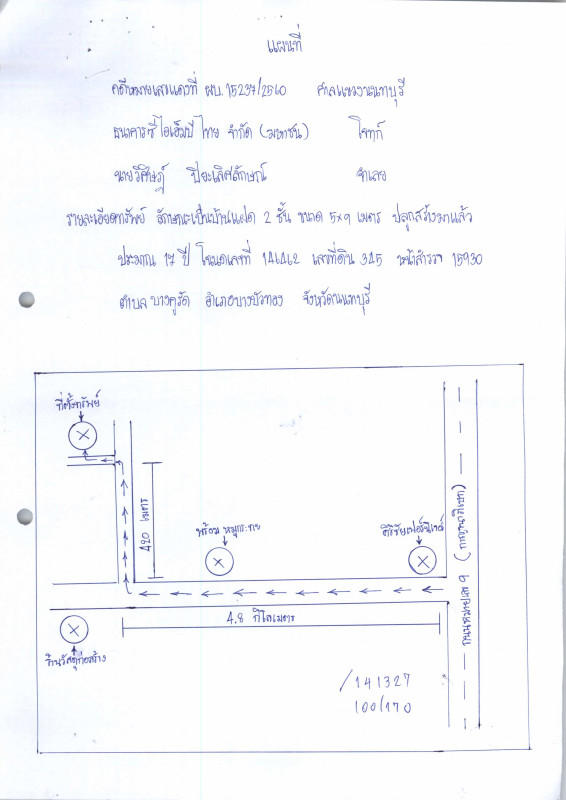 แผนที่
คดีหมายเลขแดงที่ ผบ. 15237/2560 ศาลแขวงนนทบุรี
ธนาคารซีไอเอ็มบี ไทย จำกัด (มหาชน) โจทก์
นายวิศิษฎ์ ปิยะเลิศลักษณ์ จำเลย
รายละเอียดทรัพย์ ลักษณะเป็นบ้านแฝด 2 ชั้น ขนาด 5×9 เมตร ปลูกสร้างมาแล้ว
ประมาณ 17 ปี โฉนดเลขที่ 141462 เลขที่ดิน 345 หน้าสำรวจ 15930
ตำบล บางคูรัด อำเภอบางบัวทอง จังหวัดนนทบุรี
ที่ตั้งทรัพย์
420 เมตร
พร้อม หมูกระทะ
ศิริชัยเฟอร์นิเจอร์
ถนนหมายเลข 9 (กาญจนาภิเษก)
4.8 กิโลเมตร
ร้านวัสดุก่อสร้าง
/141327
100/170